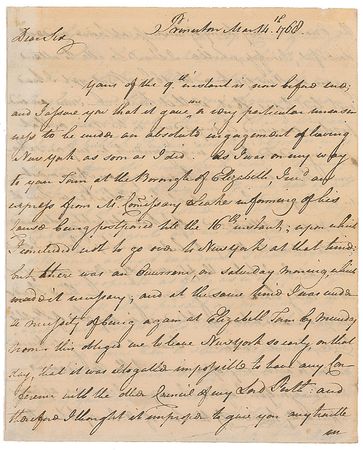 Princeton Mar. 14.th 1768.
Dear Sir,
Yours of the 9.th instant is now before me;
and I assure you that it gave me a very particular uneasi-
ness to be under an absolute engagement of leaving
New York as soon as I did. As I was on my way
to your Town at the Borough of Elizabeth, I rec'd an
express from Mr. Commissary Leake informing of his
cause being postponed till the 16.th instant; upon which
I concluded not to go over to New York at that time;
but there was an on Saturday morning which
made it necessary; and at the same time I was under
a necessity of being again at Elizabeth Town by monday
noon: this obliged me to leave New York so early on that
day, that it was altogether impossible to have any Con-
ference with the other Council of my Lord : and
therefore I thought it improper to give you any trouble
on